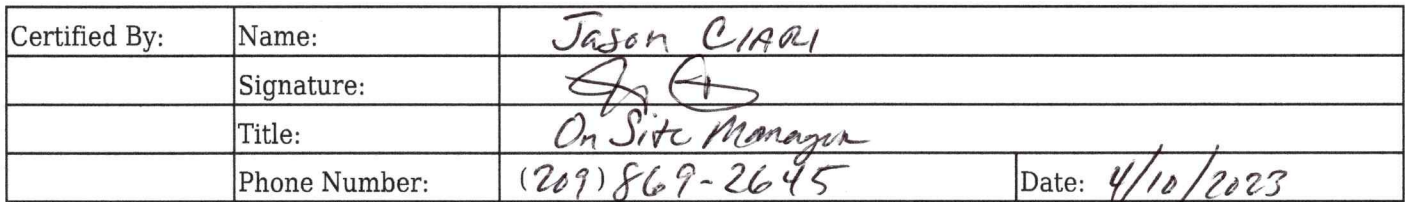 Certified By: Name: Jason CIARI
Signature:
Title: On Site Manager
Phone Number: (209) 869-2645 Date: 4/10/2023